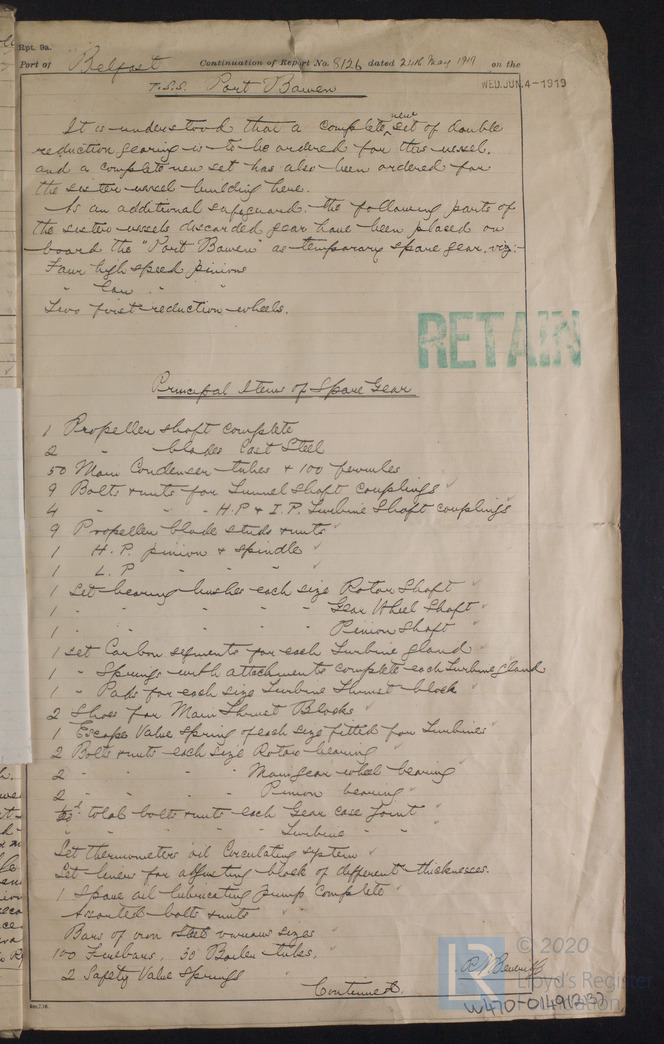 Rpt. 9a.
Port of Belfast Continuation of Report No. 8126 dated 24th May 1919 on the
WED. JUN. 4 - 1919
T.S.S. Port Bowen
It is understood that a complete new set of double
reduction gearing is to be ordered for this vessel,
and a complete new set has also been ordered for
the sister vessel building here.
As an additional safeguard, the following parts of
the sister vessels discarded gear have been placed on
board the "Port Bowen" as temporary spare gear, viz:-
Four high speed pinions
" low " "
Two first reduction wheels.
RETAIN
Principal Items of Spare Gear
1 Propeller shaft complete
2 " blades Cast Steel
50 Main Condenser tubes + 100 ferrules
9 Bolts + nuts for Tunnel Shaft couplings
4 " " " H.P. & I.P. Turbine Shaft couplings
9 Propeller blade studs + nuts
1 H.P. pinion & spindle
1 L.P. " " "
1 Set bearing bushes each size Rotor Shaft
1 " " " " " Gear Wheel Shaft
1 " " " " " Pinion Shaft
1 set Carbon segments for each Turbine gland
1 " Springs with attachments complete each Turbine gland
1 " Pads for each size Turbine Thrust block
2 Shoes for Main Thrust Blocks
1 Escape Valve Spring of each size fitted for Turbines
2 Bolts + nuts each size Rotor bearing
2 " " " " Main gear wheel bearing
2 " " " " Pinion bearing
total bolts + nuts each Gear case joint
" " " " " Turbine " "
Set thermometers oil Circulating system
Set liners for adjusting block of different thicknesses.
1 Spare oil lubricating pump complete
Assorted bolts + nuts
Bars of iron + Steel various sizes
100 Firebars. 30 Boiler tubes.
2 Safety Valve Springs
Continued.
© 2020
LR
Lloyd's Register
Foundation
W470-0149(2/3)